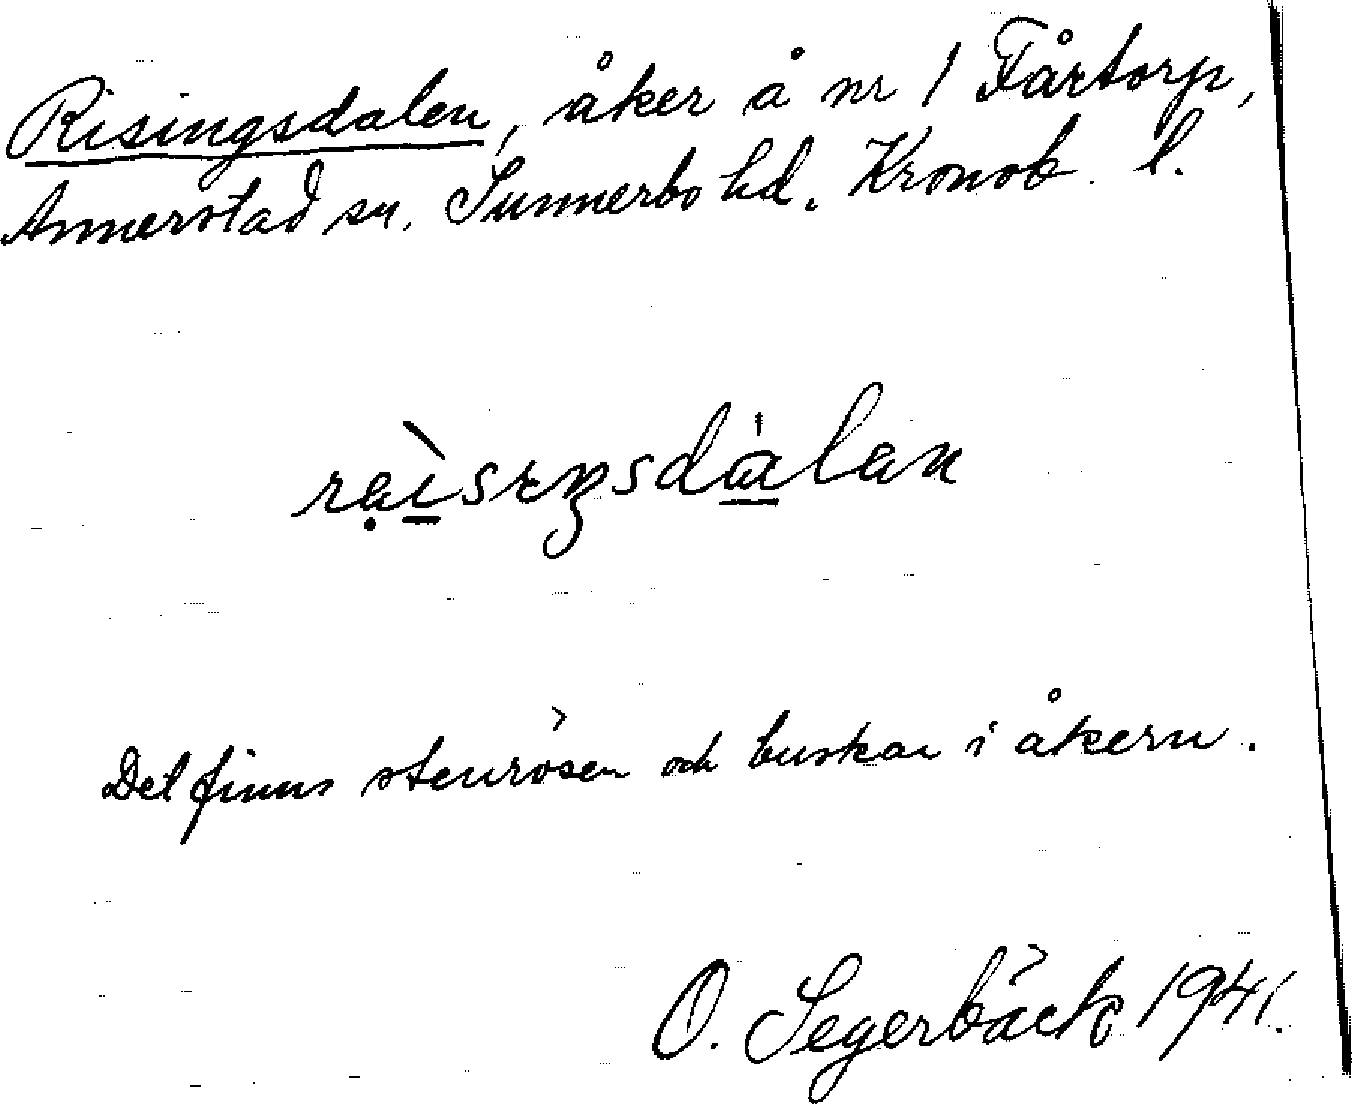 Risingsdalen, åker å nr 1 Fårtorp,
Annerstad sn. Sunnerbo hd. Kronob. l.
Det finns stenrösen och buskar i åkern.
O. Segerbäck 1941.